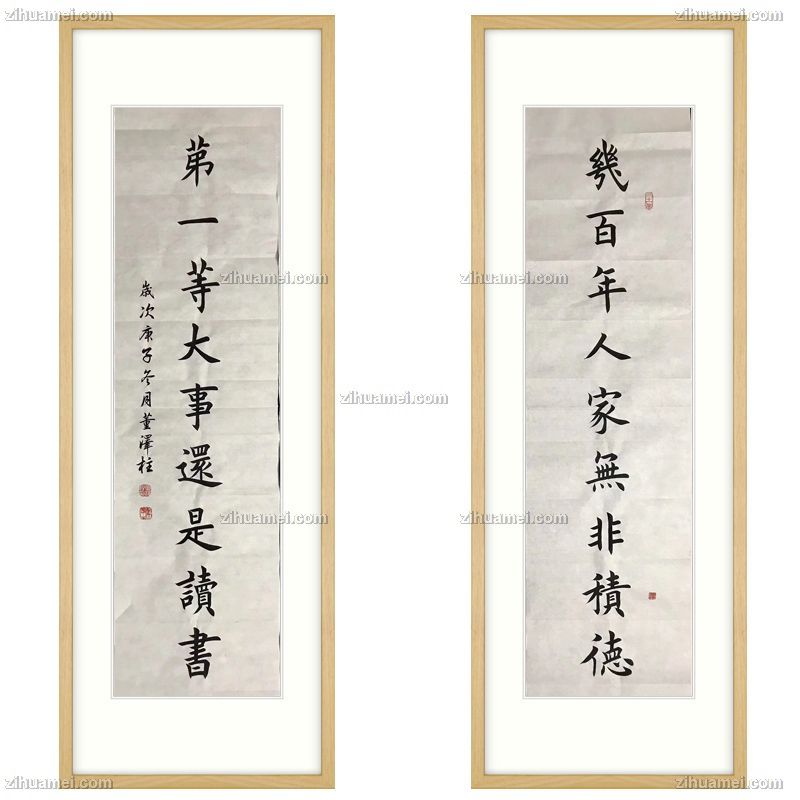 幾百年人家無非積德
第一等大事還是讀書
歲次庚子冬月董澤柱
zihuamei.com
zihuamei.com
zihuamei.com
zihuamei.com
zihuamei.com
zihuamei.com
zihuamei.com
zihuamei.com
zihuamei.com